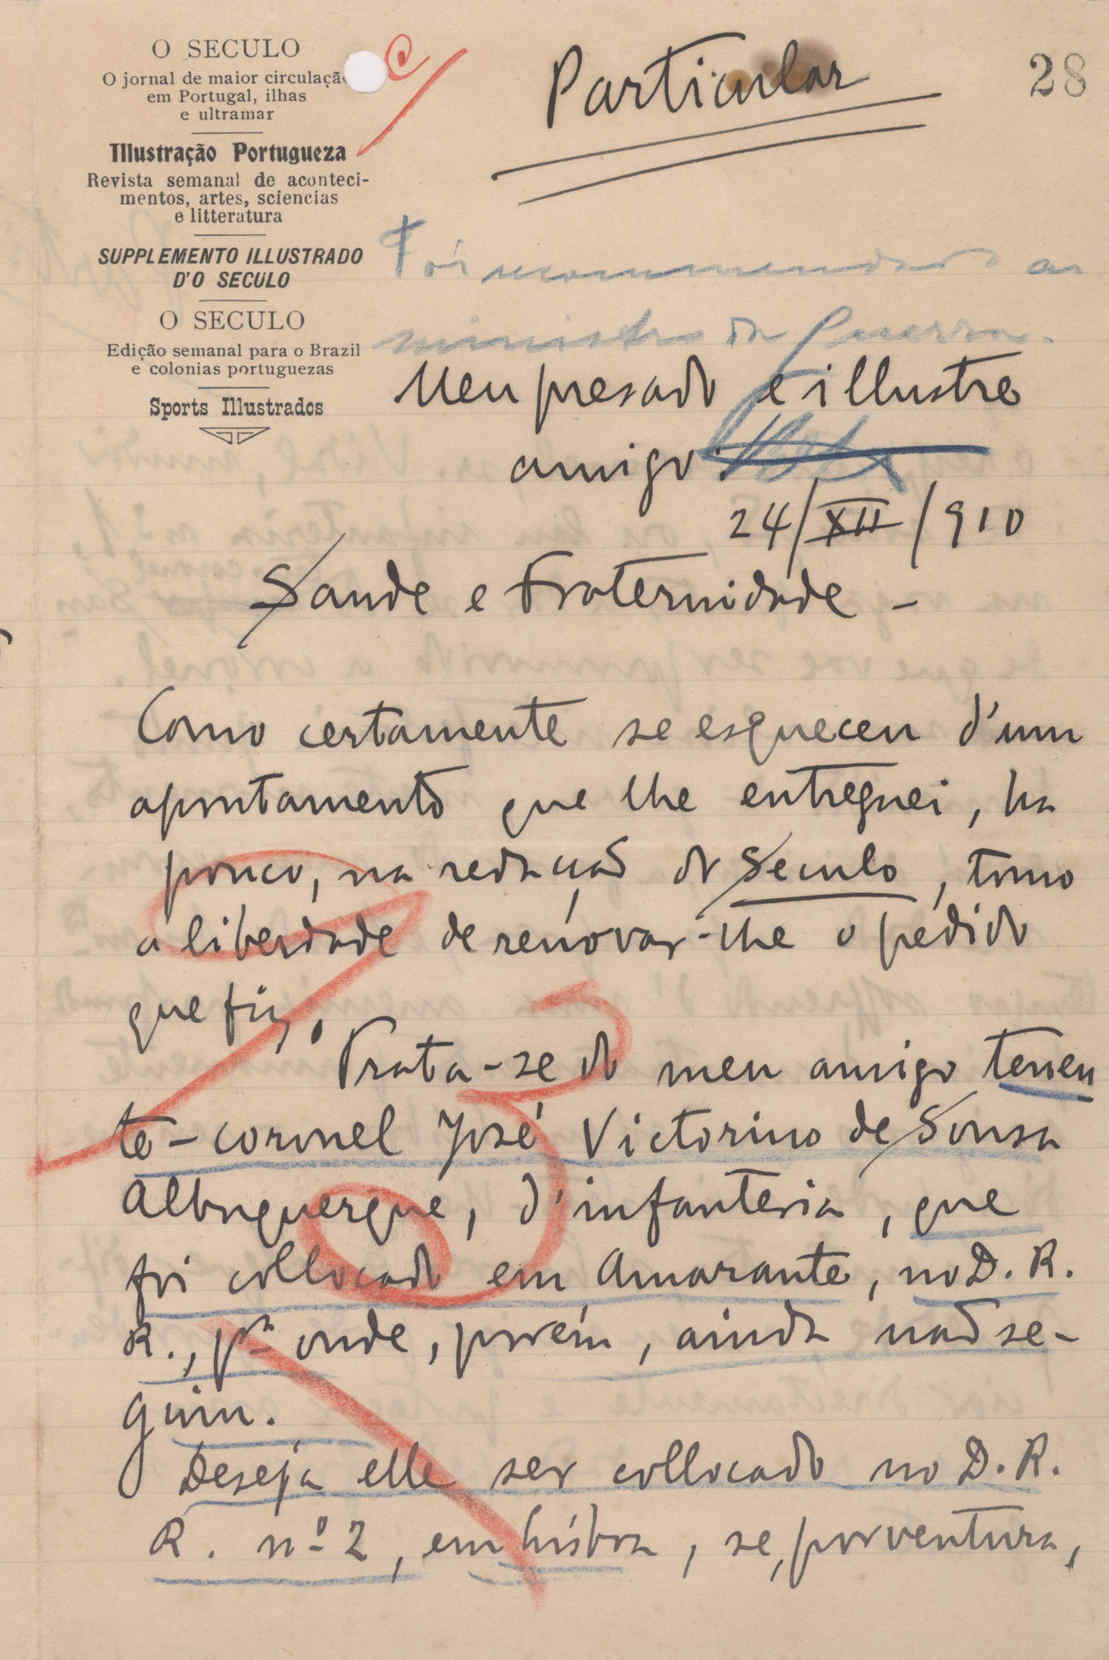 O SECULO
O jornal de maior circulaçã
em Portugal, ilhas
e ultramar
Illustração Portugueza
Revista semanal de aconteci-
mentos, artes, sciencias
e litteratura
SUPPLEMENTO ILLUSTRADO
D'O SECULO
O SECULO
Edição semanal para o Brazil
e colonias portuguezas
Sports Illustrados
Particular
28
Foi recommendado ao
ministro da Guerra.
Meu presado e illustre
amigo:
24/XII/910
Saude e Fraternidade -
Como certamente se esqueceu d'um
apontamento que lhe entreguei, ha
pouco, na redacção do Seculo, tomo
a liberdade de renovar-lhe o pedido
que fiz.
Trata-se do meu amigo tenen
te-coronel José Victorino de Sousa
Albuquerque, d'infanteria, que
foi collocado em Amarante, no D. R.
R., pª onde, porém, ainda não se-
guiu.
Deseja elle ser collocado no D. R.
R. nº 2, em Lisboa, se, porventura,